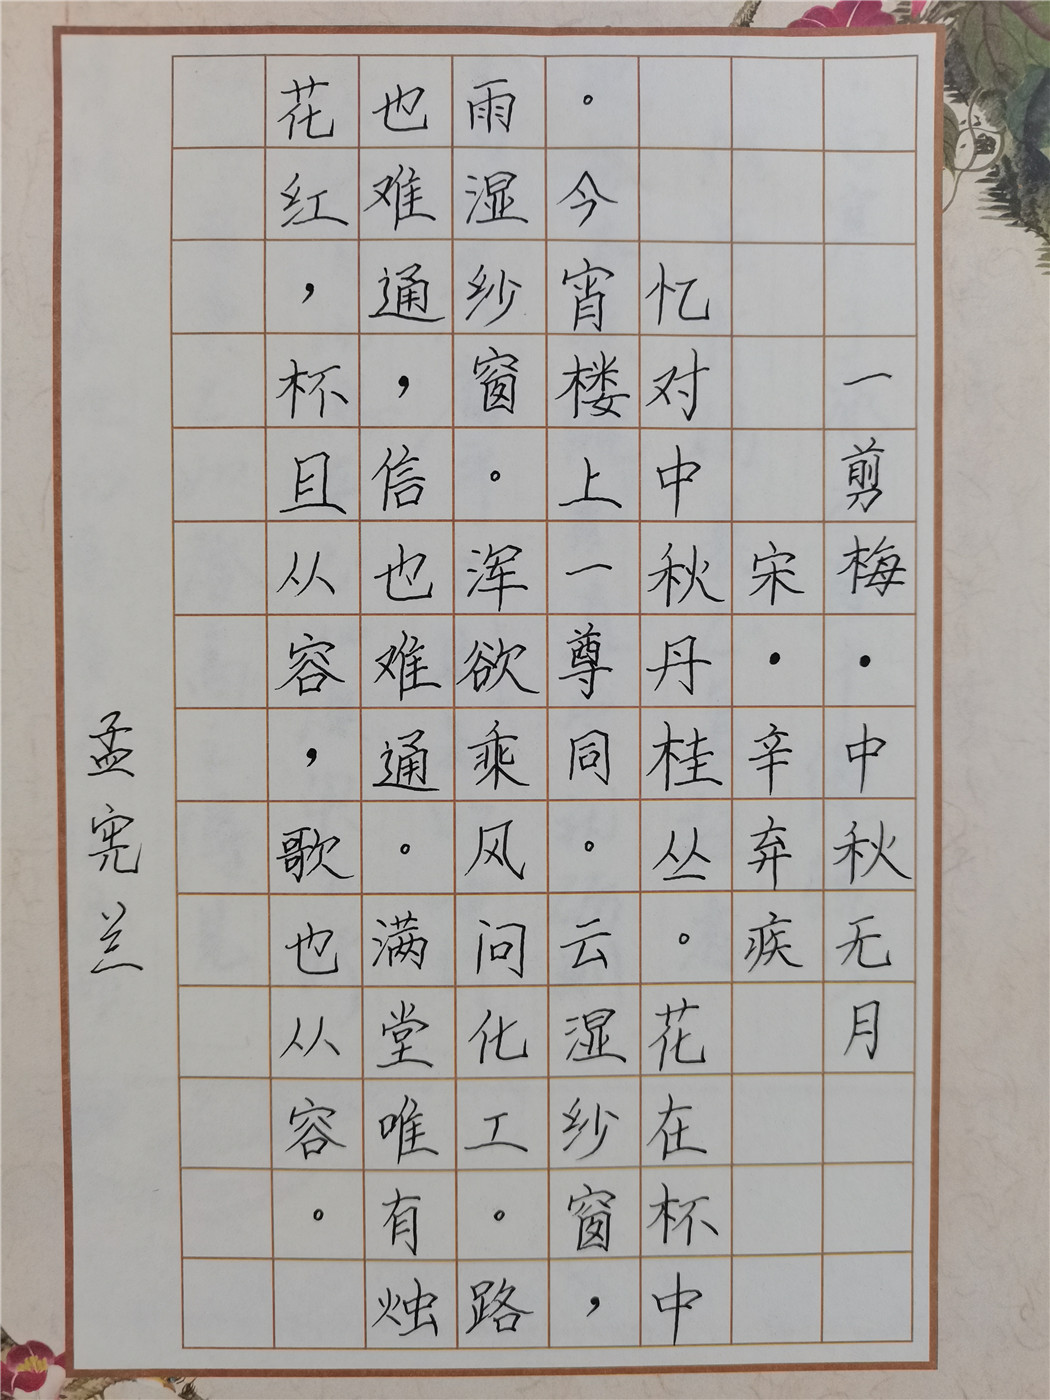 一剪梅·中秋无月
宋·辛弃疾
忆对中秋丹桂丛。花在杯中
。今宵楼上一尊同。云湿纱窗，
雨湿纱窗。浑欲乘风问化工。路
也难通，信也难通。满堂唯有烛
花红，杯且从容，歌也从容。
孟宪兰